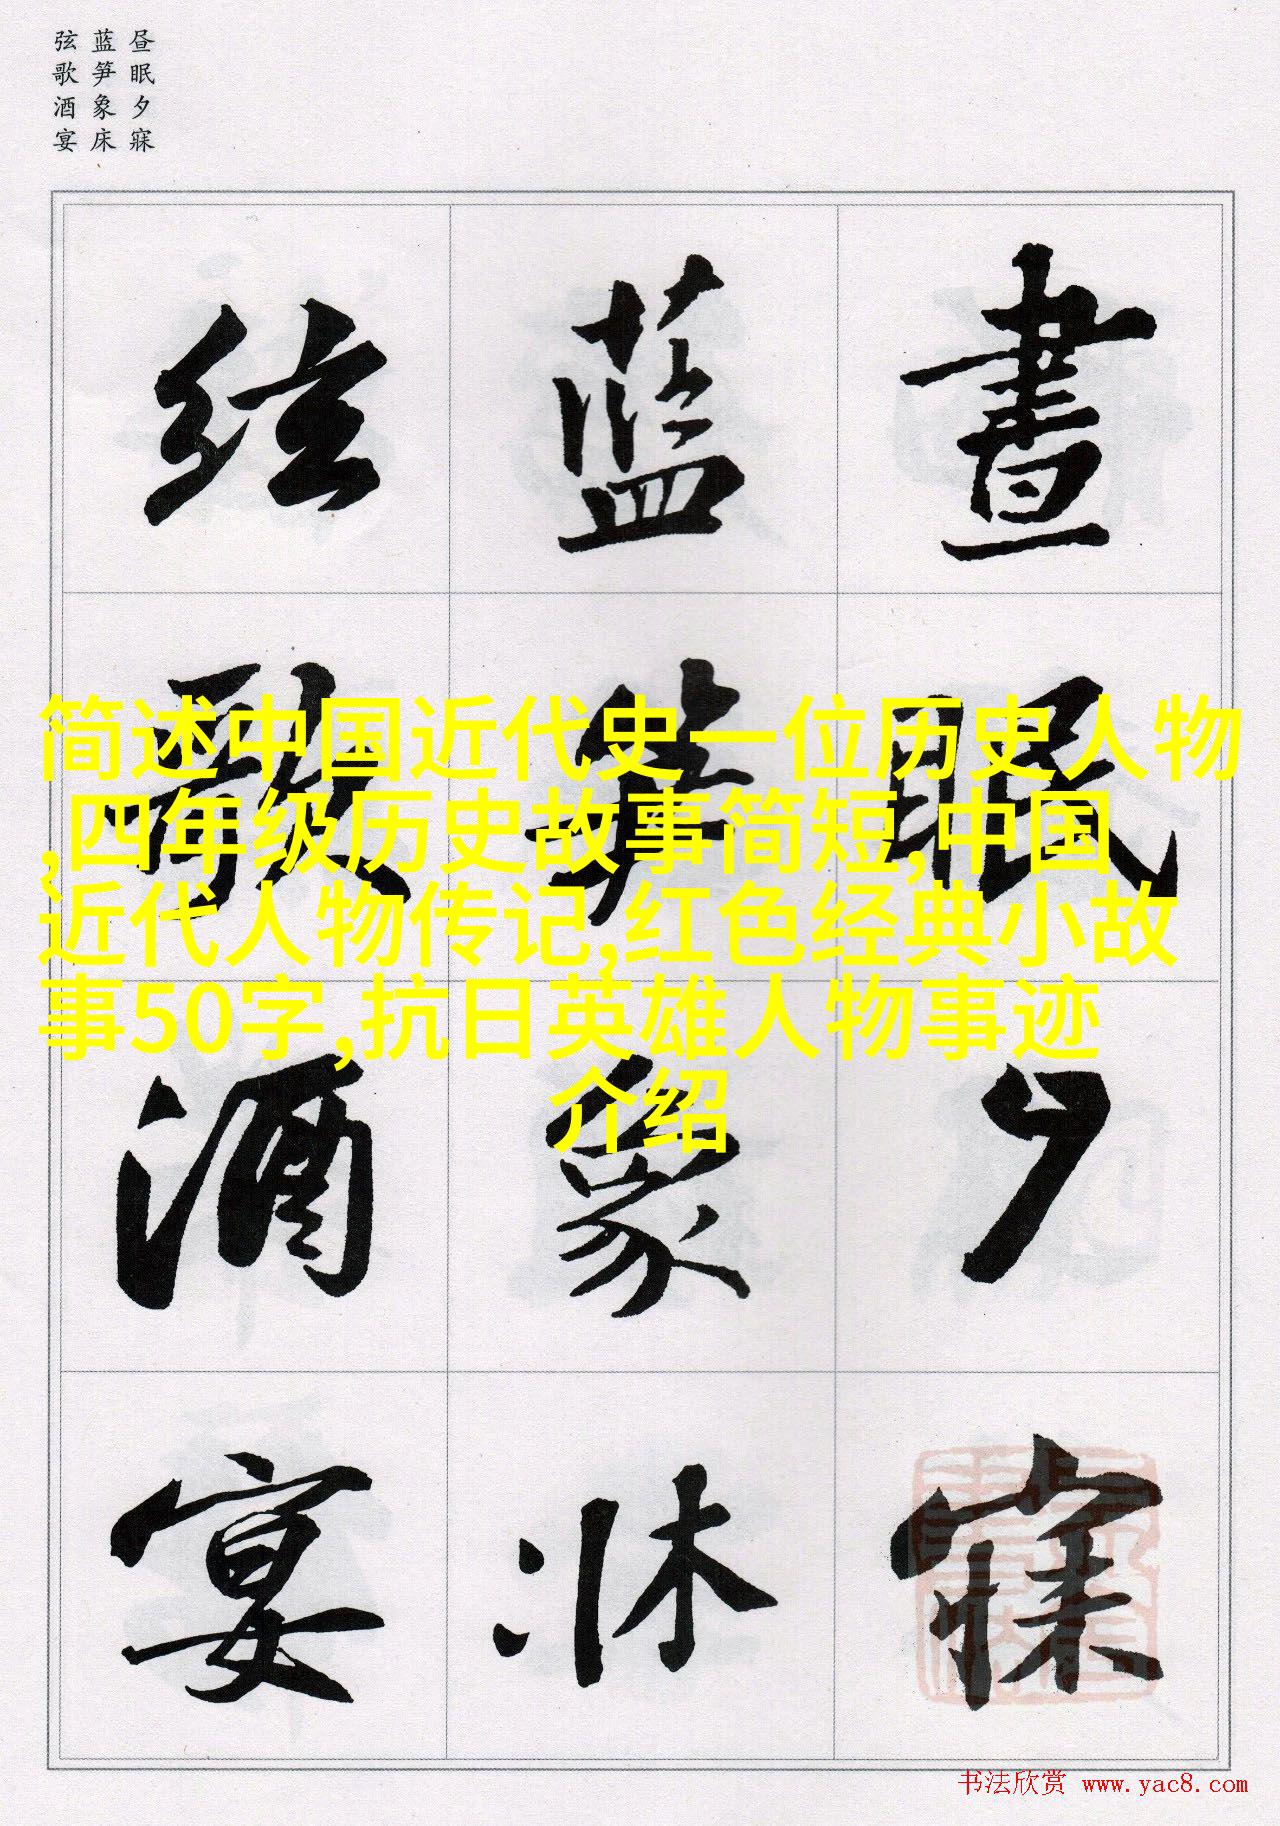 昼眠夕寐
蓝笋象床
弦歌酒宴
晝眠夕寐
蓝笋象床
弦歌酒宴
简述中国近代史一位历史人物
,四年级历史故事简短,中国
近代人物传记,红色经典小故
事50字,抗日英雄人物事迹
介绍
书法欣赏 www.yac8.com